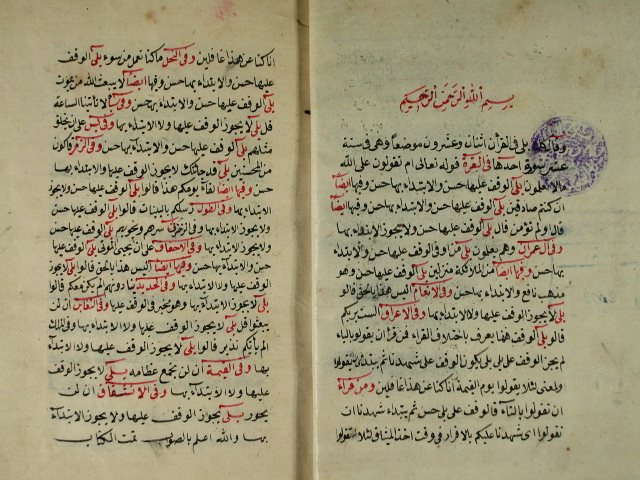 بسم الله الرحمن الرحيم
وقالكلا بلى فى القرأن اثنان وعشرون موضعا وهى فى ستة
عشر سورة احدها فى البقرة قوله تعالى ام تقولون على الله
مالا تعلمون بلى الوقف عليها حسن والابتداء بها حسن وفيها ايضاً
ان كنتم صادقين بلى الوقف عليها حسن والابتداء بها حسن وفيها ايضاً
قال اولم تؤمن قال بلى الوقف عليها حسن ولا يجوز الابتداء بها
وفى آل عمران وهم يعلمون بلى من اوفى الوقف عليها حسن والابتداء
بها حسن وفيها ايضاً من الملائكة منزلين بلى الوقف عليها حسن وهو
مذهب نافع والابتداء بها حسن وفى الانعام اليس هذا بالحق قالو
بلى لا يجوز الوقف عليها ولا الابتداء بها وفى الاعراف الست بربكم
قالو بلى الوقف هنا يعرف باختلاف القراء فمن قرأ ان يقولو بالياء
لم يجز الوقف على بلى بل يكون الوقف على شهدنا ثم يبتدئ ان يقولوا
والمعنى لئلا يقولوا يوم القيمة انا كنا عن هذا غافلين ومن قرأ
ان تقولوا بالتآء فالوقف على بلى حسن ثم يبتداء شهدنا ان
تقولوا اى شهدنا عليكم بالاقرار فى وقت اخذ الميثاق لئلا تقولوا
انا كنا عن هذا غافلين وفى النحل ما كنا نعمل من سوء بلى الوقف
عليها حسن والابتداء بها حسن وفيها ايضاً لا يبعث الله من يموت
بلى الوقف عليها حسن والابتداء بها حسن وفى سبأ لا تأتينا الساعة
قل بلى لا يجوز الوقف عليها ولا الابتداء بها وفى يس على ان يخلق
مثلهم بلى الوقف عليها حسن والابتداء بها حسن وفى الزمر فاكون
من المحسنين بلى قد جاءتك لا يجوز الوقف عليها والابتداء بها
حسن وفيها ايضاً لقاء يومكم هذا قالوا بلى الوقف عليها حسن ولا يجوز
الابتداء بها وفى الطول رسلكم بالبينات قالوا بلى الوقف عليها حسن
ولا يجوز الابتداء بها وفى الزخرف سرهم ونجويهم بلى الوقف عليها حسن
ولا يجوز الابتداء بها وفى الاحقاف على ان يحيى الموتى بلى الوقف عليها
حسن والابتداء بها حسن وفيها ايضاً اليس هذا بالحق قالوا بلى لا يجوز
الوقف عليها ولا الابتداء بها وفى الحديد ينادونهم الم نكن معكم قالوا
بلى لا يجوز الابتداء بها وهو مخير فى الوقف عليها وفى التغابن ان لن
يبعثوا قل بلى لا يجوز الوقف عليها ولا الابتداء بها وفى الملك
الم يأتكم نذير قالوا بلى لا يجوز الوقف عليها ولا الابتداء
بها وفى القيمة ان لن نجمع عظامه بلى لا يجوز الوقف
عليها ولا الابتداء بها وفى الانشقاق ان لن
يحور بلى يجوز الوقف عليها ولا يجوز الابتداء
بها والله اعلم بالصواب تمت الكتاب